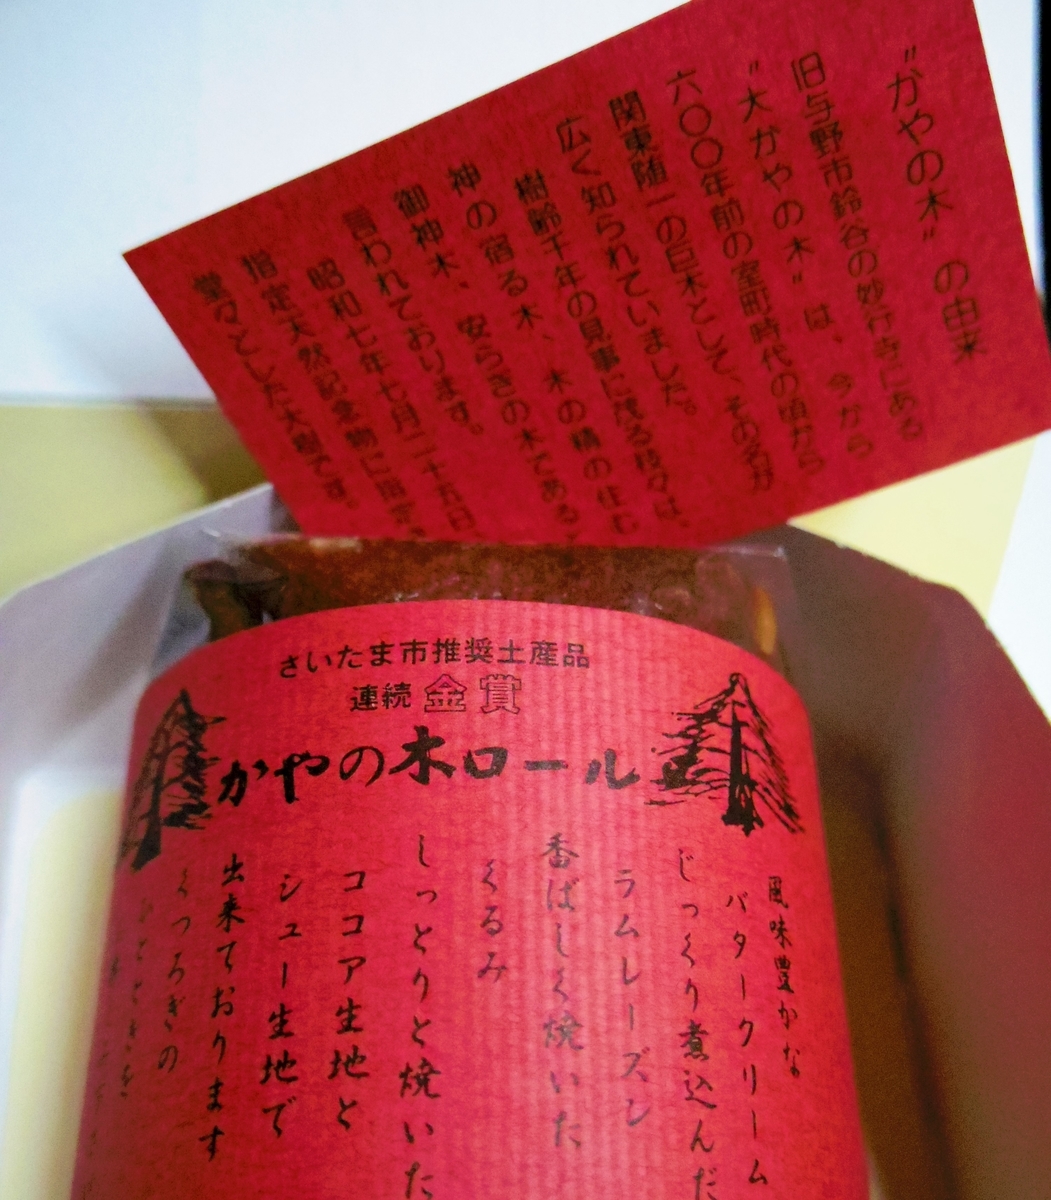 "かやの木" の由来
旧与野市鈴谷の妙行寺にある
"大かやの木" は、今から
六〇〇年前の室町時代の頃から
関東随一の巨木として、その名が
広く知られていました。
樹齢千年の見事に茂る枝々は、
神の宿る木、木の精の住む
御神木、安らぎの木である
言われております。
昭和七年七月二十五日
指定天然記念物に
堂々とした大樹です。
さいたま市推奨土産品
連続 金賞
かやの木ロール
風味豊かな
バタークリーム
じっくり煮込んだ
ラムレーズン
香ばしく焼いた
くるみ
しっとりと焼いた
ココア生地と
シュー生地で
出来ております
くつろぎの
ひとときを